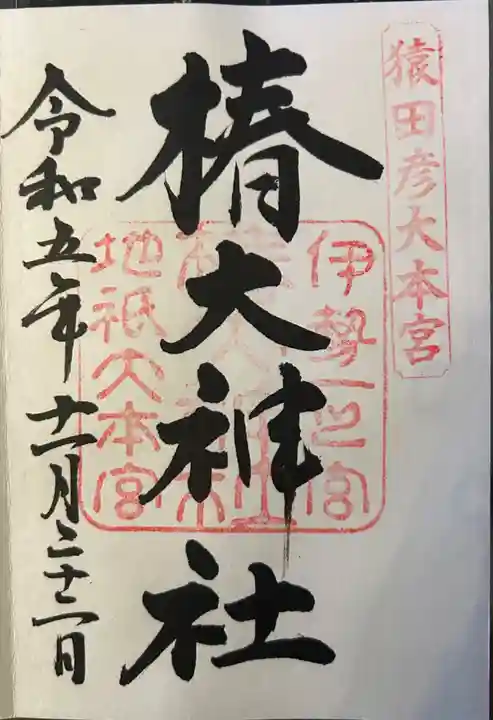 猿田彦大本宮
伊勢一之宮
椿大神社
地祇大本宮
椿大神社
令和五年十一月二十二日